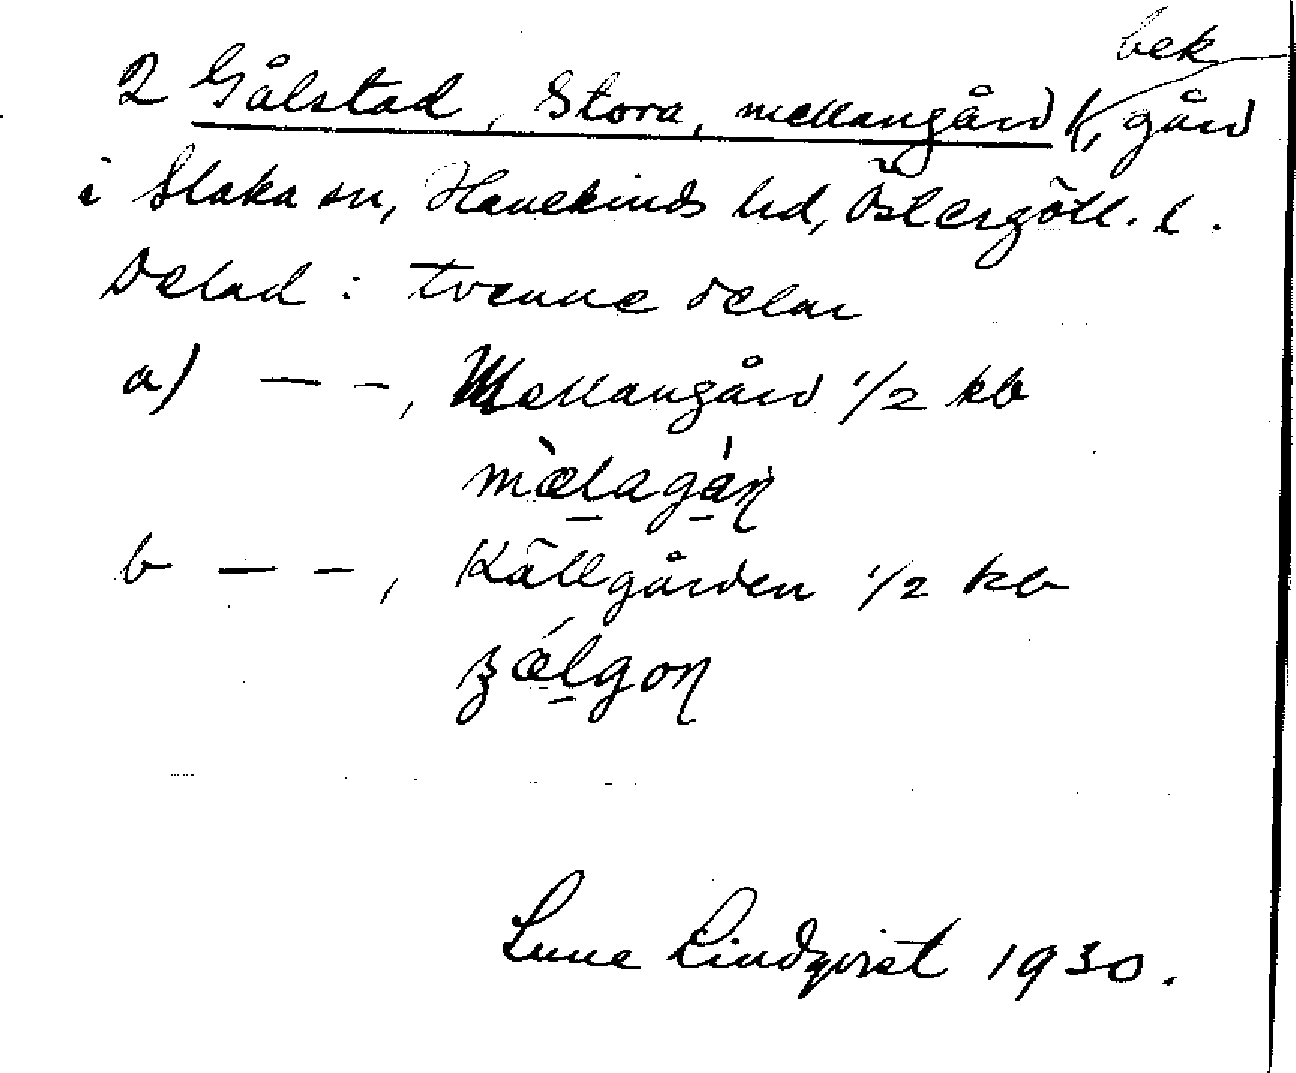 bek
2 Gålstad, Stora, mellangård, gård
i Slaka sn, Hanekinds hd, Östergötl. l.
Delad i tvenne delar
a) — –, Mellangård 1/2 kb
b — –, Källgården 1/2 kb
Sune Lindqvist 1930.